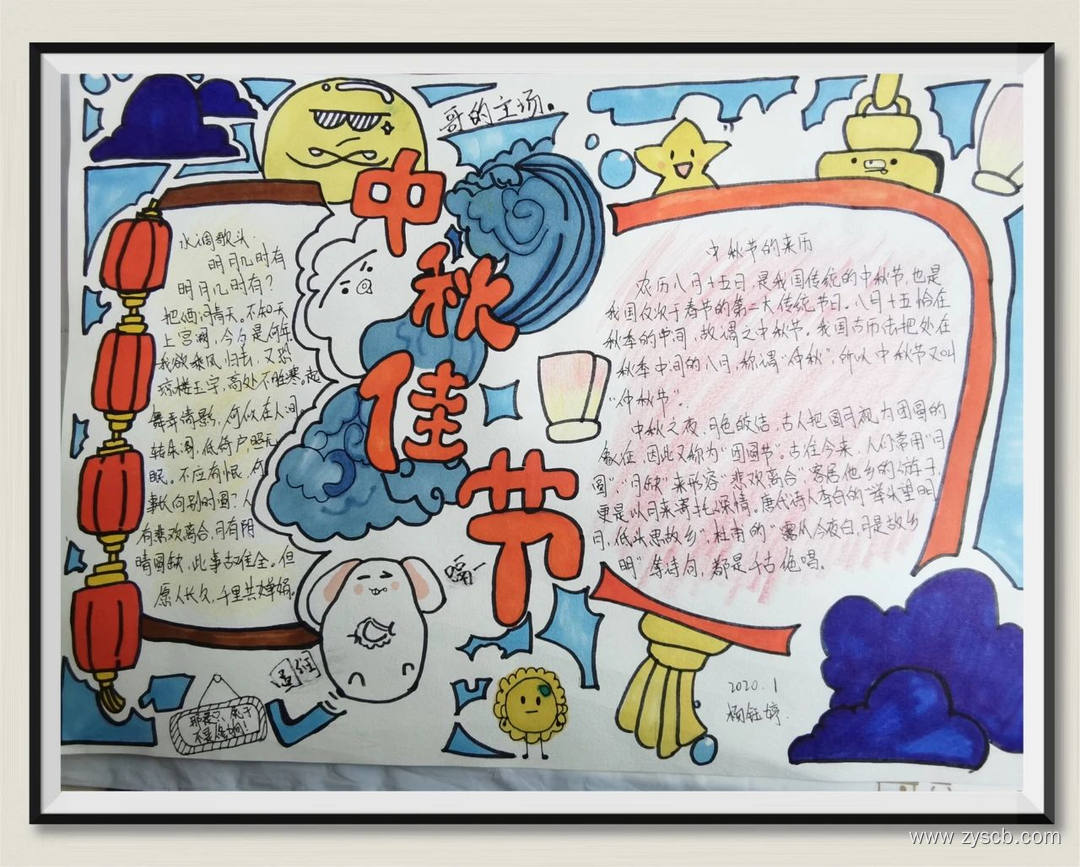 哥的主场。
中秋佳节
水调歌头
明月几时有
明月几时有？
把酒问青天。不知天
上宫阙，今夕是何年
我欲乘风归去，又恐
琼楼玉宇，高处不胜寒。起
舞弄清影，何似在人间。
转朱阁，低倚户照无
眠。不应有恨，何
事长向别时圆？人
有悲欢离合，月有阴
晴圆缺，此事古难全。但
愿人长久，千里共婵娟。
中秋节的来历
农历八月十五日，是我国传统的中秋节，也是
我国仅次于春节的第二大传统节日。八月十五恰在
秋季的中间，故谓之中秋节。我国古历法把处在
秋季中间的八月，称谓“仲秋”，所以中秋节又叫
“仲秋节”。
中秋之夜，月色皎洁，古人把圆月视为团圆的
象征，因此又称为“团圆节”。古往今来，人们常用“月
圆”、“月缺”来形容“悲欢离合”，客居他乡的游子，
更是以月来寄托深情。唐代诗人李白的“举头望明
月，低头思故乡”，杜甫的“露从今夜白，月是故乡
明”等诗句，都是千古绝唱。
嗝一
2020.1
杨钰婷
www.zyscb.com